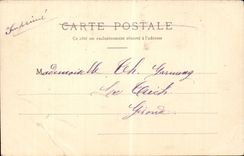 Imprimé
CARTE POSTALE
Ce côté est exclusivement réservé à l'adresse
Mademoiselle Th.
La
Gironde